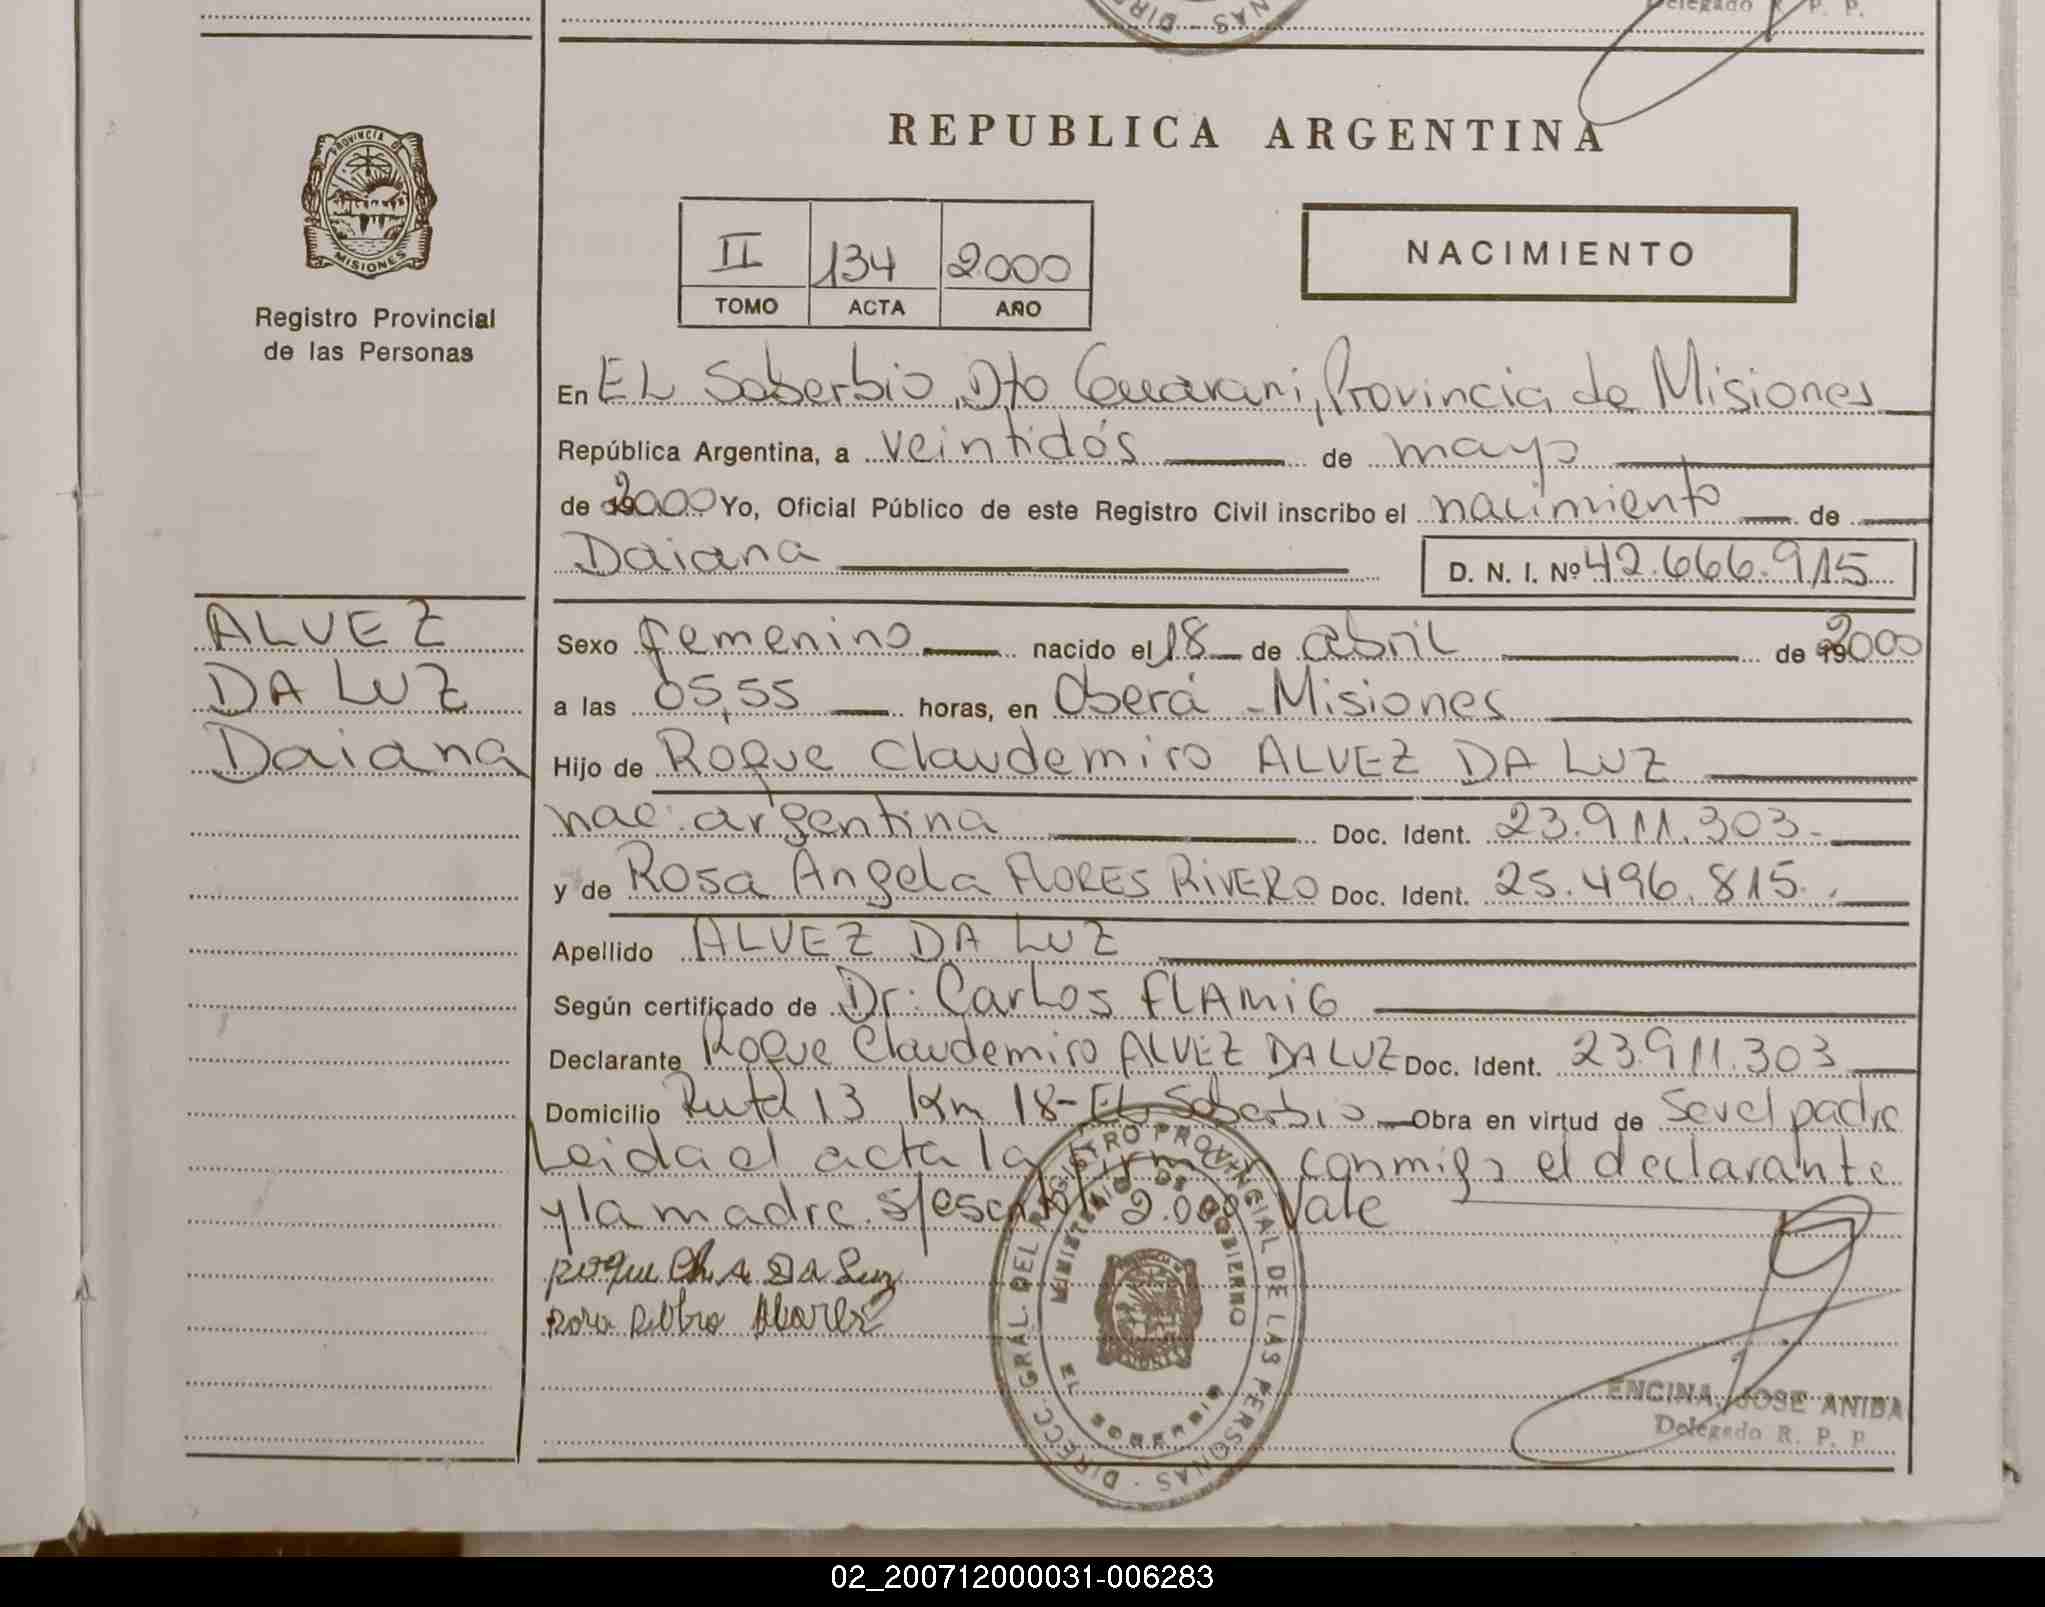 Delegado R. P. P.
REPUBLICA ARGENTINA
PROVINCIA DE
MISIONES
Registro Provincial
de las Personas
II 134 2000
TOMO ACTA AÑO
NACIMIENTO
En EL Soberbio, Dto Guarani, Provincia de Misiones
República Argentina, a veintidós de mayo
de 2000 Yo, Oficial Público de este Registro Civil inscribo el nacimiento de
Daiana
D. N. I. Nº 42.666.915
ALVEZ
DA LUZ
Daiana
Sexo femenino nacido el 18 de abril de 2000
a las 05,55 horas, en Oberá - Misiones
Hijo de Roque Claudemiro ALVEZ DA LUZ
nac. argentina Doc. Ident. 23.911.303.
y de Rosa Angela FLORES RIVERO Doc. Ident. 25.496.815.
Apellido ALVEZ DA LUZ
Según certificado de Dr. Carlos FLAMIG
Declarante Roque Claudemiro ALVEZ DA LUZ Doc. Ident. 23.911.303
Domicilio Ruta 13 Km 18 - EL Soberbio Obra en virtud de ser el padre
Leida el acta la firman conmigo el declarante
y la madre. s/escrito 2.000 Vale
DIRECC. GRAL. DEL REGISTRO PROVINCIAL DE LAS PERSONAS
MINISTERIO DE GOBIERNO
EL SOBERBIO
Roque Da Luz
ENCINA, JOSE ANIBA
Delegado R. P. P.
02_200712000031-006283